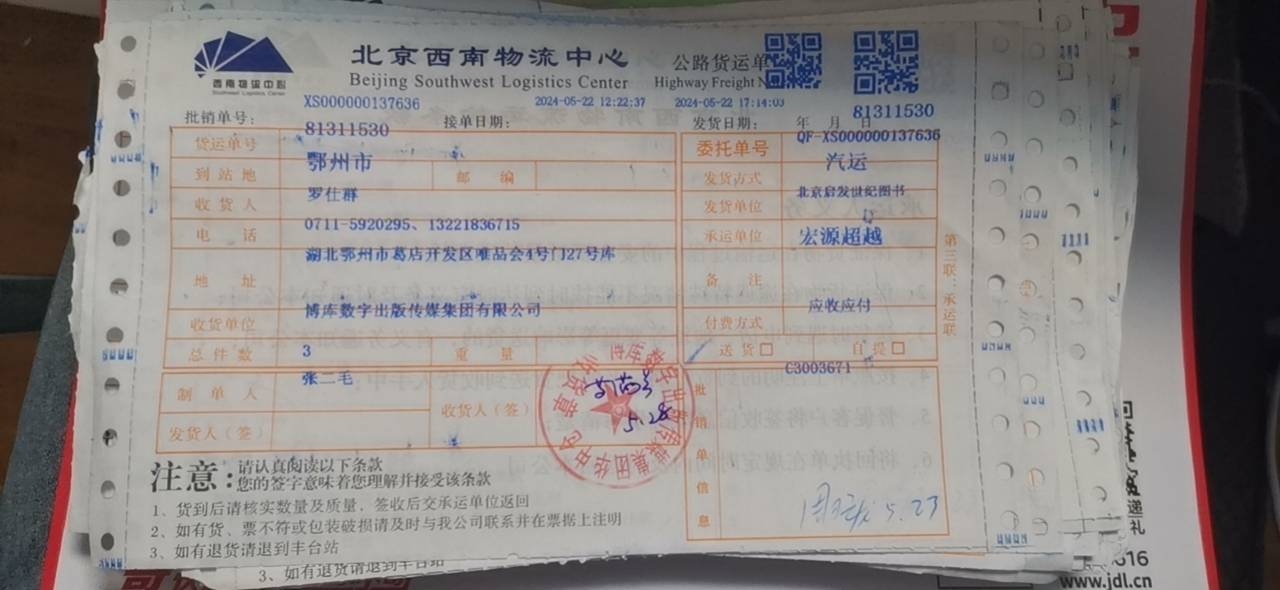 西南物流中心
Southwest Logistics Center
北京西南物流中心
Beijing Southwest Logistics Center
公路货运单
Highway Freight
批销单号：
XS000000137636
接单日期：
2024-05-22 12:22:37
2024-05-22 17:14:03
发货日期：
年 月 日
81311530
货运单号
81311530
委托单号
QF-XS000000137636
到站地
鄂州市
邮 编
发货方式
汽运
收货人
罗仕群
发货单位
北京启发世纪图书
电 话
0711-5920295、13221836715
承运单位
宏源超越
地 址
湖北鄂州市葛店开发区唯品会4号门27号库
备 注
收货单位
博库数字出版传媒集团有限公司
付费方式
应收应付
总件数
3
重 量
送货□
自提□
第三联：承运联
制单人
张二毛
收货人（签）
5.28
发货人（签）
批销单信息
C3003671
5.23
注意：
请认真阅读以下条款
您的签字意味着您理解并接受该条款
1、货到后请核实数量及质量，签收后交承运单位返回
2、如有货、票不符或包装破损请及时与我公司联系并在票据上注明
3、如有退货请退到丰台站
3、如有退货请退到丰台站
递礼
616
www.jdl.cn